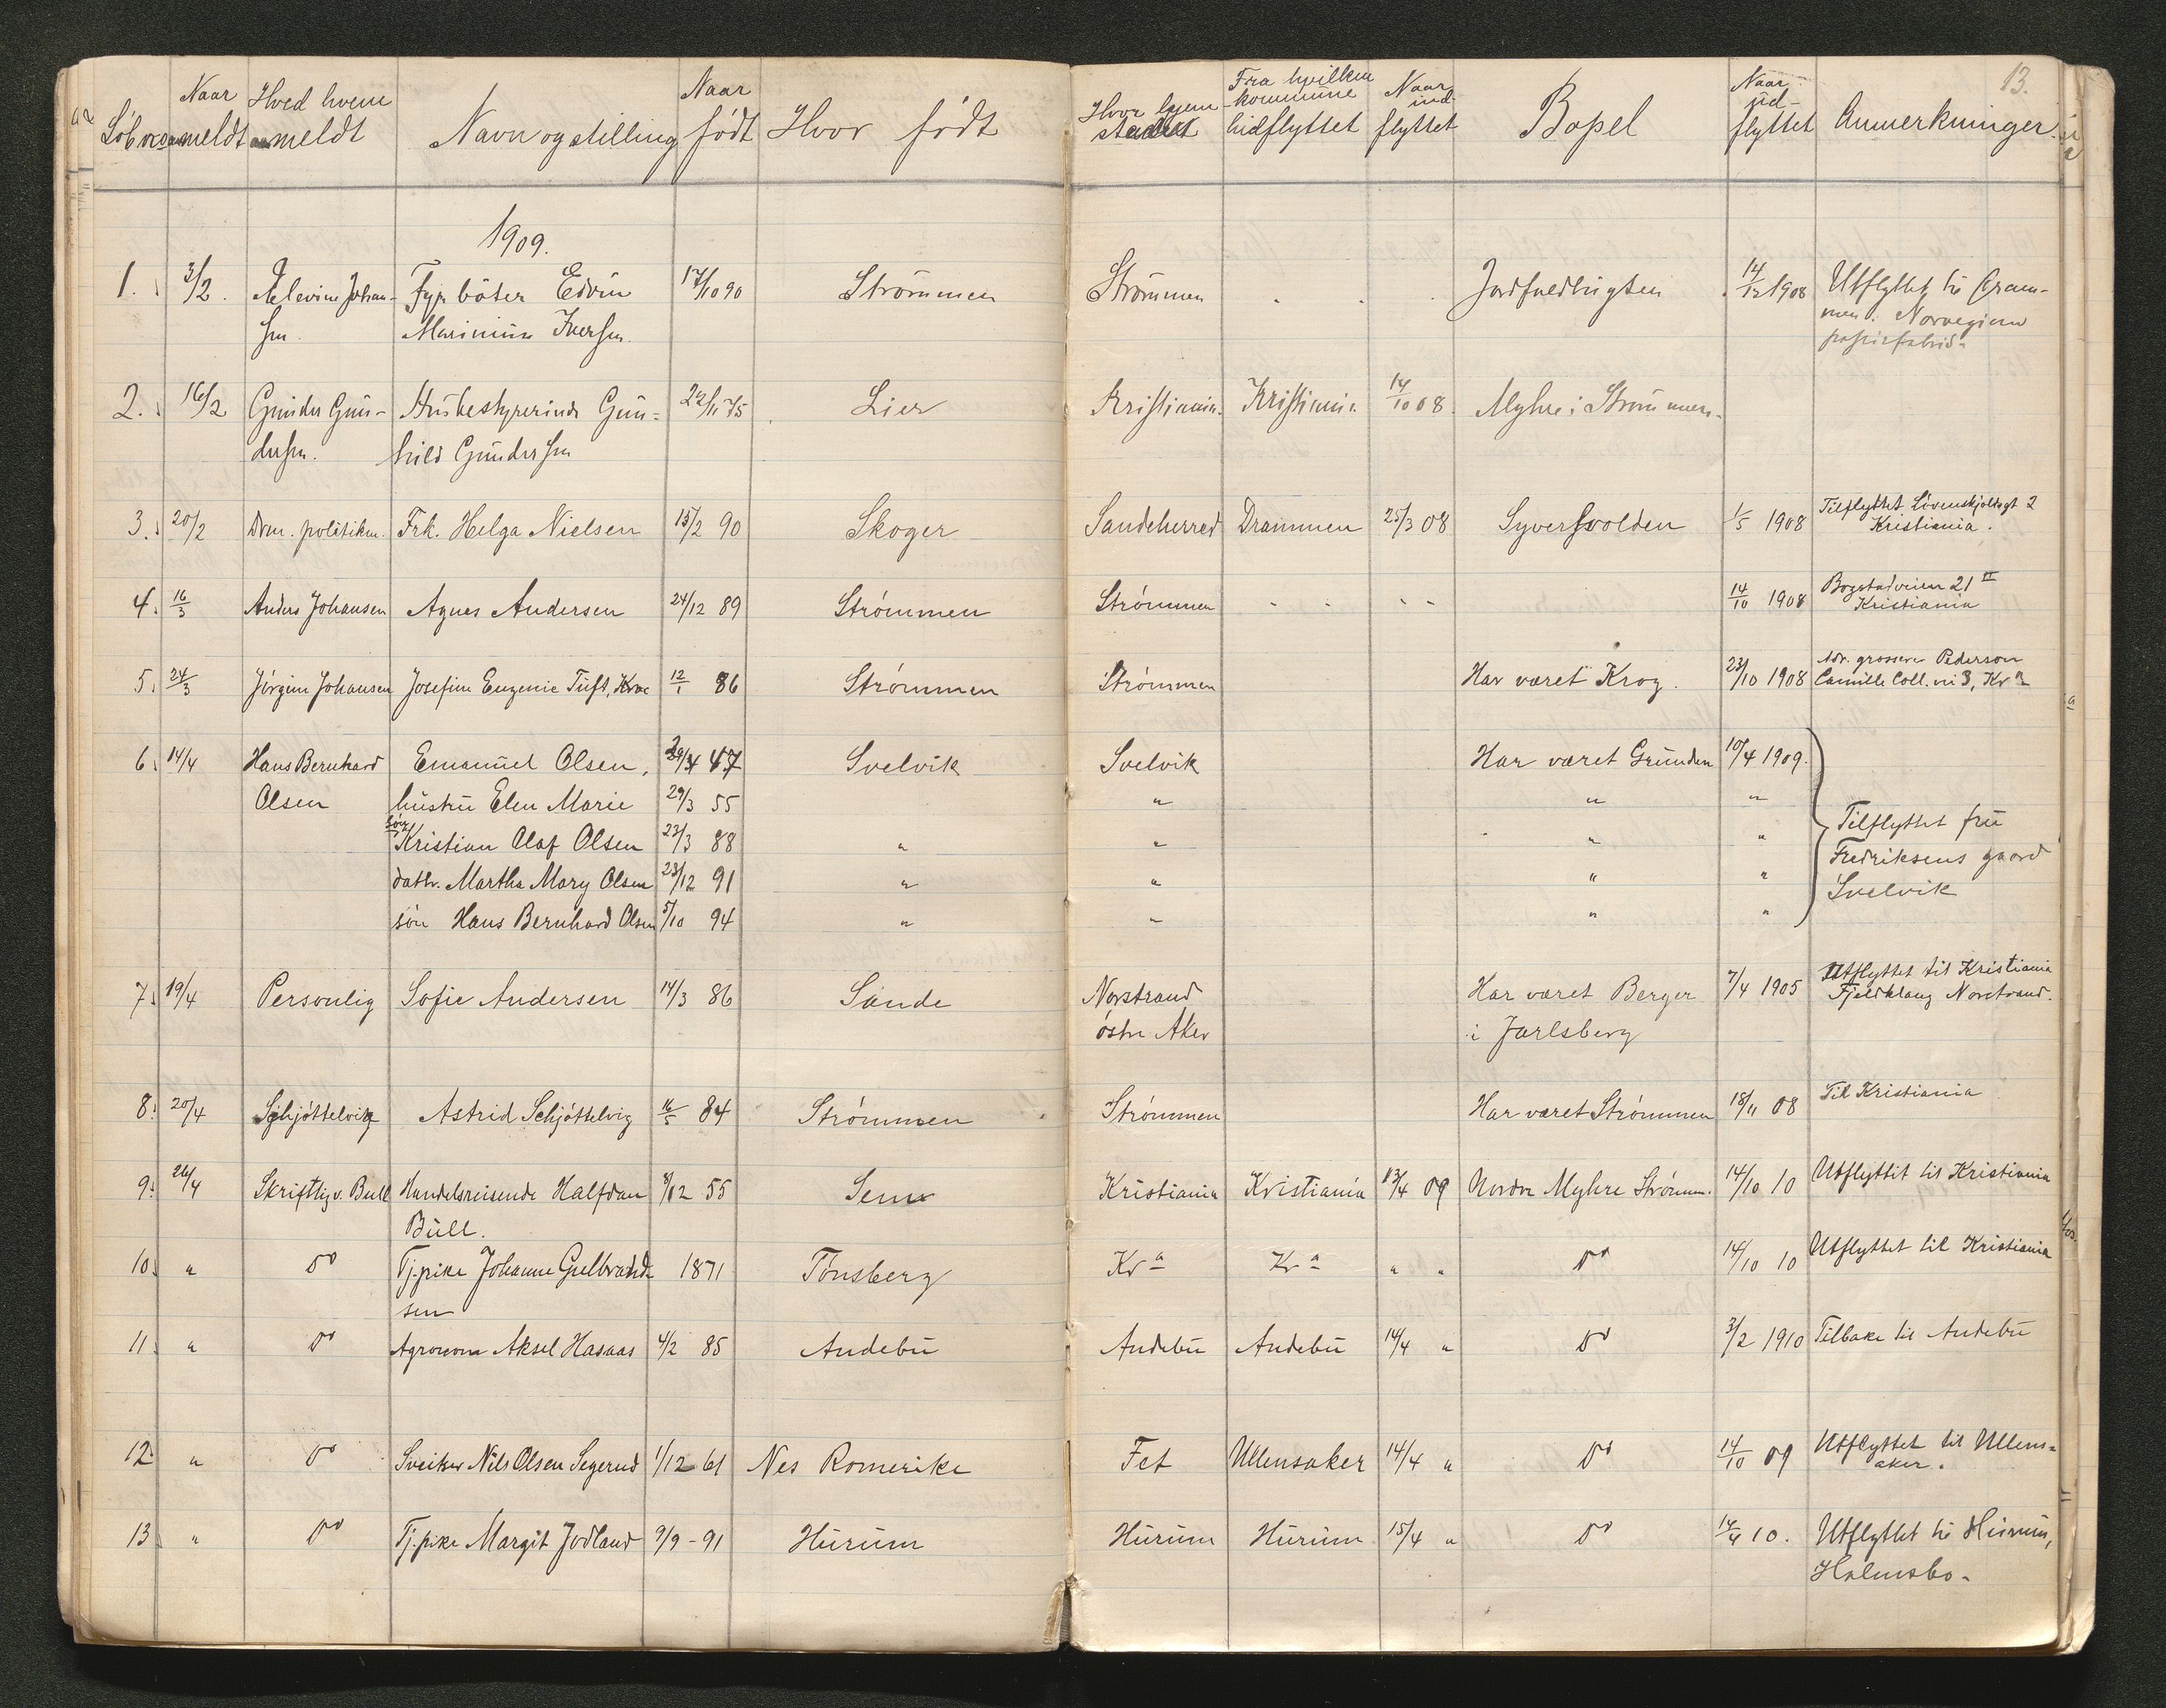 13.
Löb no Naar anmeldt Hved hvem anmeldt Navn og stilling Naar født Hvor født Hvor hjemstadet Fra hvilken kommune hidflyttet Naar indflyttet Bopel Naar udflyttet Anmerkninger.
1909.
1. 3/2. Johan- Fyrbøter Edvin 17/10 90 Strömmen Strömmen 14/12 1908 Utflyttet til Dram-
sen. Marinius Iversen. men. Norvegian
papirfabrik
2. 16/2 Gunder Gun- Husbestyrerinde Gun- 22/11 75 Lier Kristiania. Kristiania 14/10 08. Myhre i Strömmen.
dersen. hild Gundersen
3. 20/2 Drm. politikm. Frk. Helga Nielsen 15/2 90 Skoger Sandeherred Drammen 25/3 08 Syversvolden 1/5 1908 Tilflyttet Løvenskjoldsgt 2
Kristiania.
4. 16/3 Anders Johansen Agnes Andersen 24/12 89 Strömmen Strömmen - - - - 14/10 1908 Bogstadveien 21 II
Kristiania
5. 24/3 Jörgine Johansen Josefine Eugenie Tuft, 12/1 86 Strömmen Strömmen Har været Krog. 23/10 1908 Adr. grosserer Pederson
Camilla Coll. vei 3, Kra
6. 14/4 Hans Bernhard Emanuel Olsen, 47 Svelvik Svelvik Har været Grunden 10/4 1909.
Olsen hustru Elen Marie 29/3 55 " " "
søn Kristian Olaf Olsen 23/3 88 " " " " Tilflyttet fru
dattr. Martha Mary Olsen 23/12 91 " " " " Fredriksens gaard
sön Hans Bernhard Olsen 5/10 94 " " " " Svelvik
7. 19/4 Personlig Sofie Andersen 14/3 86 Sande Norstrand Har været Berger 7/4 1905 Utflyttet til Kristiania
östre Aker i Jarlsberg Fjeldklang Norstrand.
8. 20/4 Schjöttelvig Astrid Schjöttelvig 16/5 84 Strömmen Strömmen Har været Strömmen 18/11 08 Til Kristiania
9. 26/4 Skriftlig v. Bull Handelsreisende Halfdan 8/12 55 Sem Kristiania Kristiania 13/4 09 Nordre Myhre Strömm. 14/10 10 Utflyttet til Kristiania
Bull.
10. " Do Tj.pike Johanne Gulbrand- 1871 Tönsberg Kra Kra " " Do 14/10 10 Utflyttet til Kristiania
sen
11. " Do Agronom Aksel Hasaas 4/2 85 Andebu Andebu Andebu 14/4 " Do 3/2 1910 Tilbake til Andebu
12. " Do Sveiser Nils Olsen Segerud 1/12 61 Nes Romerike Fet Ullensaker 14/4 " Do 14/10 09 Utflyttet til Ullens-
aker.
13 " Do Tj.pike Margit Jodland 9/9 - 91 Hurum Hurum Hurum 15/4 " Do 14/4 10. Utflyttet til Hurum,
Holmsbo.